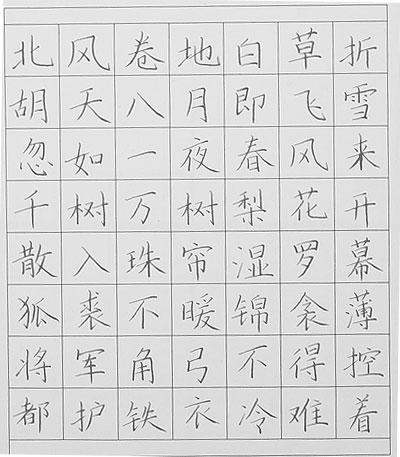 北风卷地白草折
胡天八月即飞雪
忽如一夜春风来
千树万树梨花开
散入珠帘湿罗幕
狐裘不暖锦衾薄
将军角弓不得控
都护铁衣冷难着